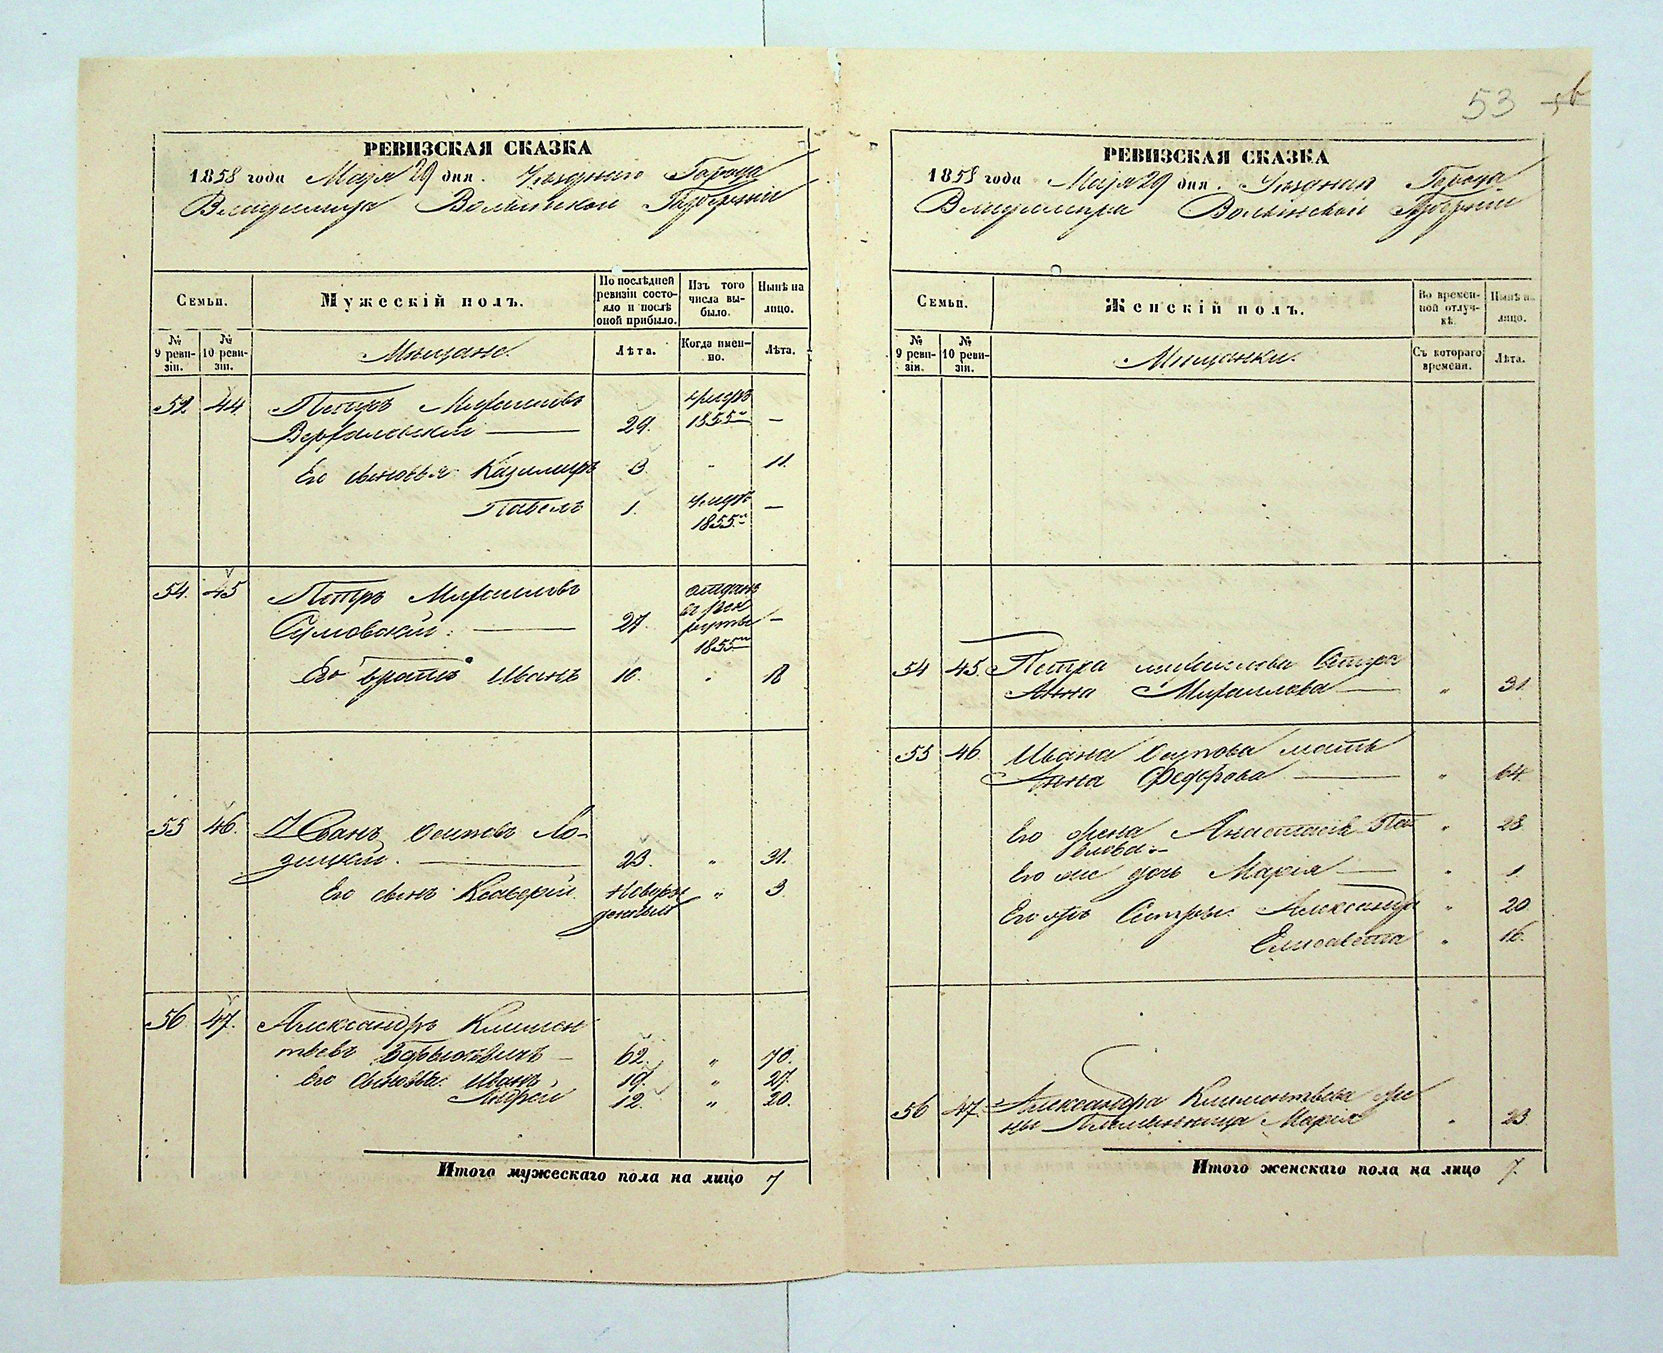 53
РЕВИЗСКАЯ СКАЗКА
1858 года Мая 29 дня. Уезднаго Города
Владимира Волынской Губернии
Семьи.
Мужескій полъ.
По послѣдней ревизіи состояло и послѣ оной прибыло.
Изъ того числа выбыло.
Нынѣ на лицо.
№ 9 ревизіи.
№ 10 ревизіи.
Мещане.
Лѣта.
Когда именно.
Лѣта.
52. 44. Петръ Михайловъ умеръ
29. 1855 —
Его сыновья Казимиръ 3. „ 11.
Павелъ 1. умеръ —
1855
54. 45 Петръ Михайловъ отданъ
Сумовскій. 27. въ рек
руты —
1855
Его братъ Иванъ 10. „ 18
55 46. Иванъ Осиповъ Ло-
зицкій. 23. „ 31.
Его сынъ Ксаверій. Новорож „ 3.
денный
56 47. Александръ Климен
тьевъ 62. „ 70.
Его сыновья Иванъ 19. „ 27.
Андрей 12. „ 20.
Итого мужескаго пола на лицо 7
РЕВИЗСКАЯ СКАЗКА
1858 года Мая 29 дня. Уезднаго Города
Владимира Волынской Губернии
Семьи.
Женскій полъ.
Во временной отлучкѣ.
Нынѣ на лицо.
№ 9 ревизіи.
№ 10 ревизіи.
Мещанки.
Съ котораго времени.
Лѣта.
54 45. Петра Михайлова Сестра
Анна Михайлова „ 31.
55 46. Ивана Осипова мать
Анна Федорова „ 64.
Его жена Анастасія Па „ 28
влова
Его же дочь Марія „ 1
Его же Сестры Александра „ 20
Елисавета „ 16.
56 47. Александра Климентьева же
ны Племянница Марія „ 23.
Итого женскаго пола на лицо 7.